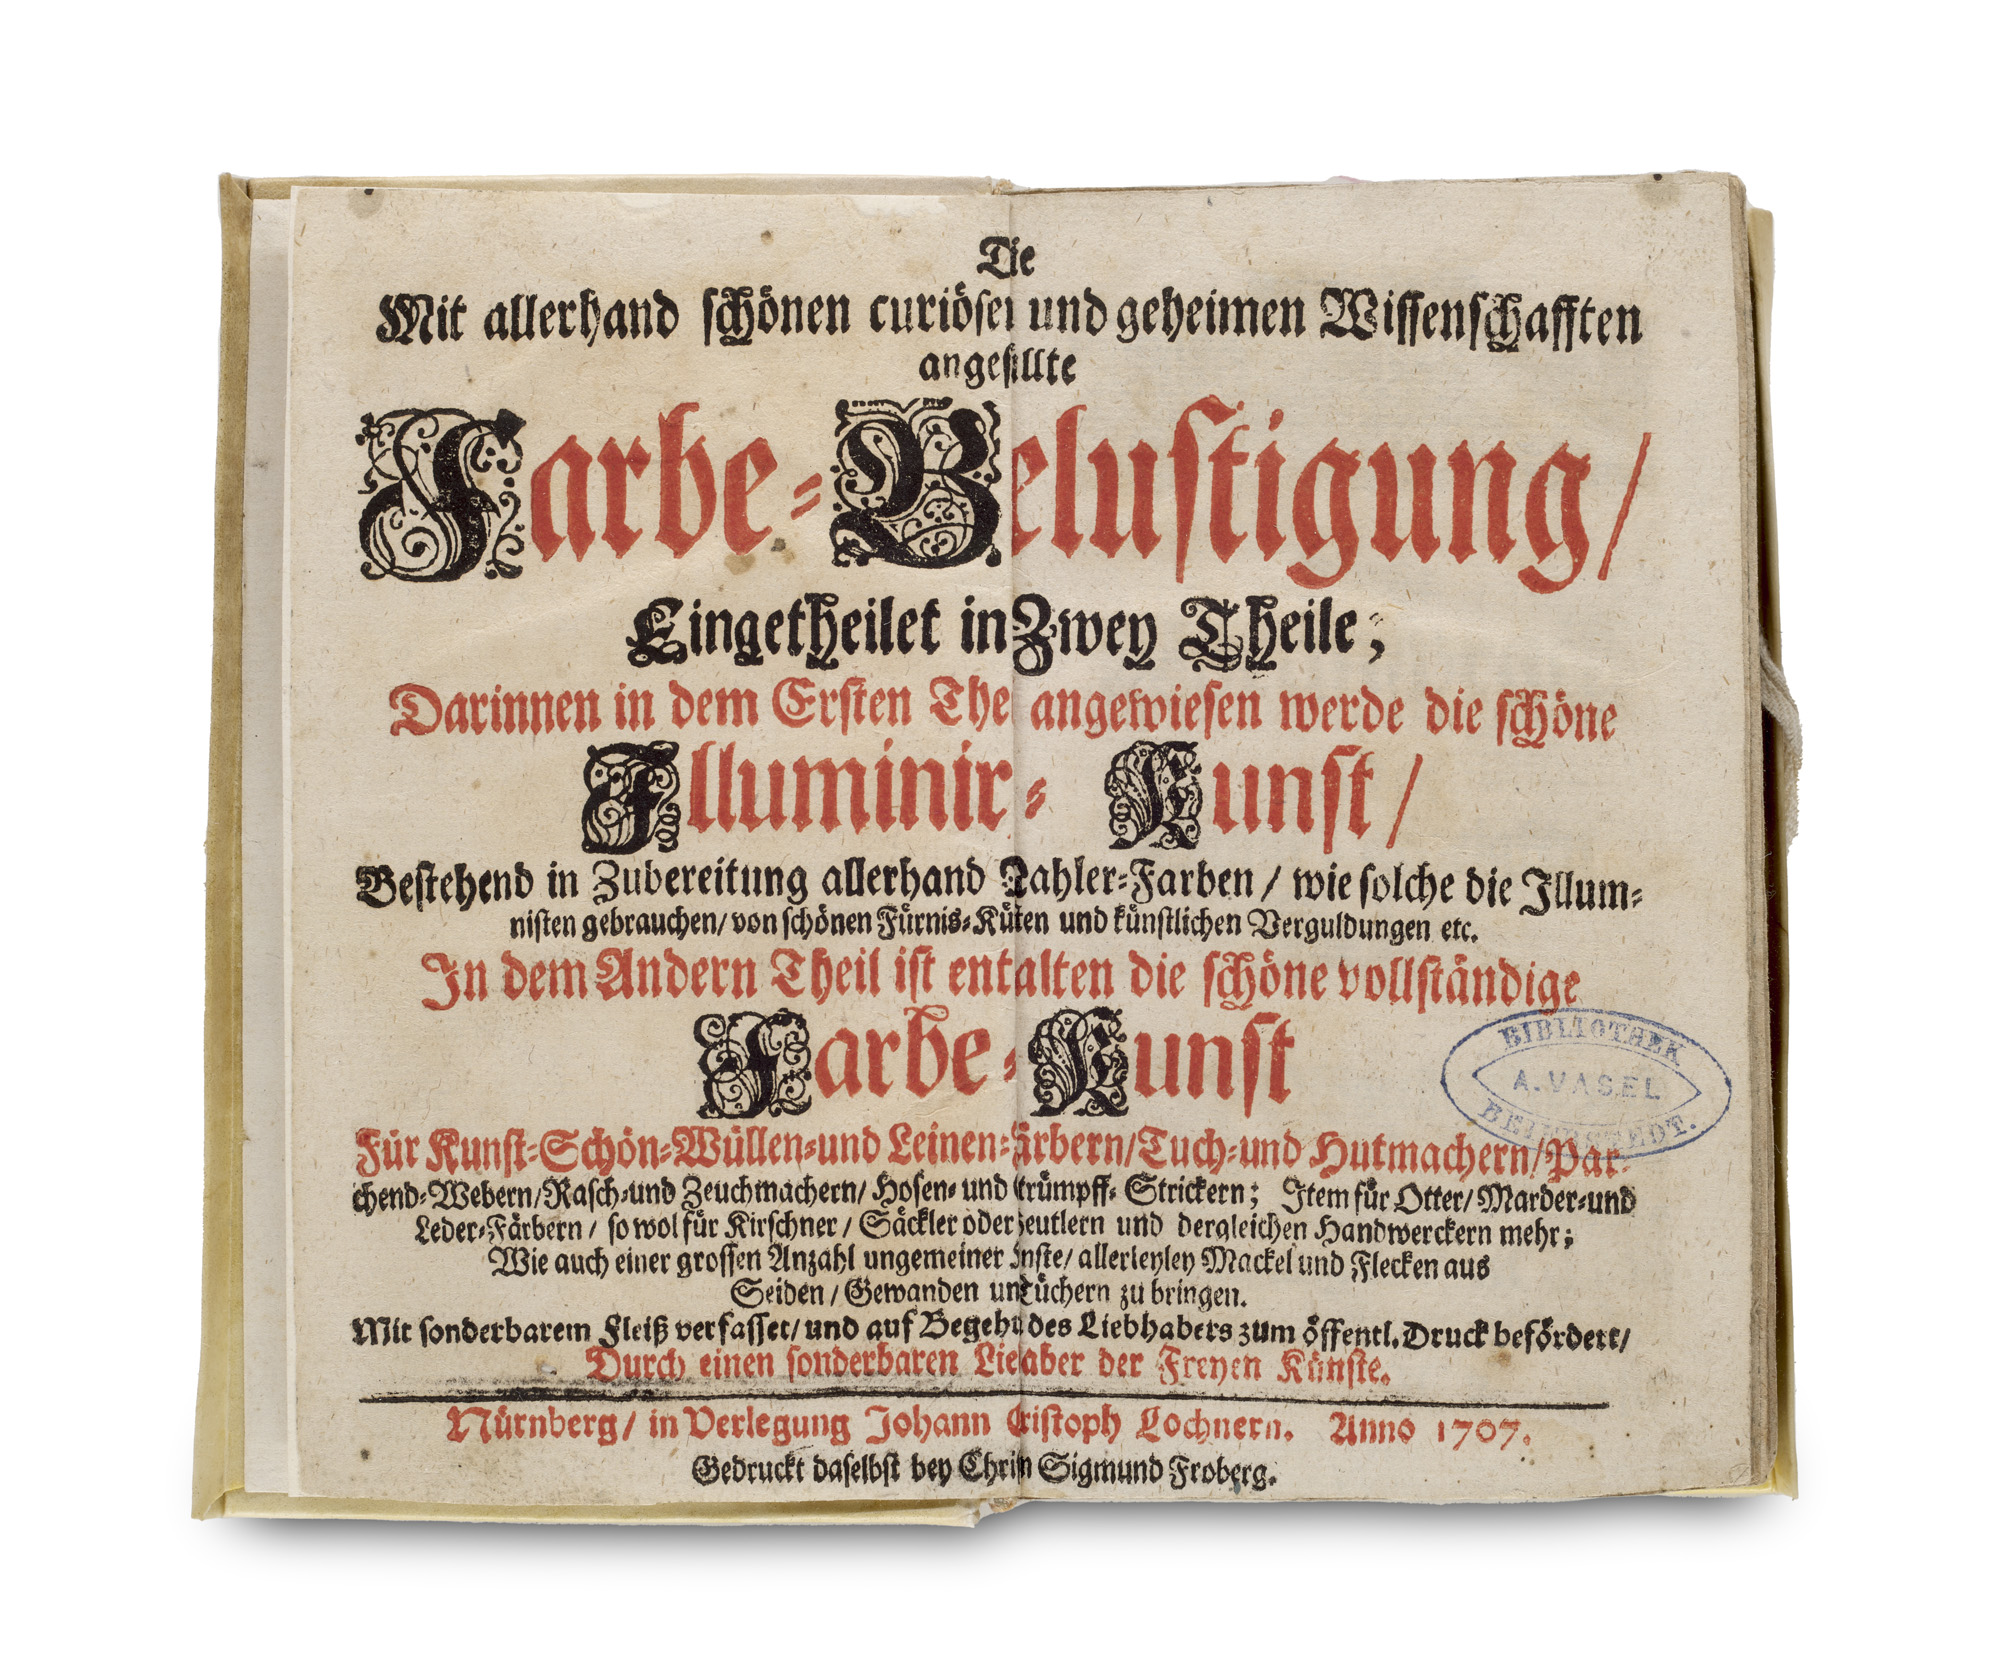 Die
Mit allerhand schönen curiösen und geheimen Wissenschafften
angefüllte
Farbe-Belustigung/
Eingetheilet in Zwey Theile;
Darinnen in dem Ersten Thei angewiesen werde die schöne
Illuminir- Kunst/
Bestehend in Zubereitung allerhand Mahler-Farben / wie solche die Illum-
nisten gebrauchen/ von schönen Fürnis-Küten und künstlichen Verguldungen etc.
In dem Andern Theil ist entalten die schöne vollständige
Farbe-Kunst
Für Kunst-Schön-Wüllen-und Leinen-Färbern/Tuch-und Hutmachern/Par-
chend-Webern/Rasch-und Zeuchmachern/ Hosen-und Strümpff-Strickern; Item für Otter/ Marder-und
Leder-Färbern / so wol für Kirschner / Säckler oder Beutlern und dergleichen Handwerckern mehr;
Wie auch einer grossen Anzahl ungemeiner Künste/ allerleyley Mackel und Flecken aus
Seiden / Gewanden und Tüchern zu bringen.
Mit sonderbarem Fleiß verfasset/ und auf Begehr des Liebhabers zum öffentl. Druck befördert/
Durch einen sonderbaren Liebhaber der Freyen Künste.
Nürnberg/ in Verlegung Johann Christoph Lochnern. Anno 1707.
Gedruckt daselbst bey Christian Sigmund Froberg.
BIBLIOTHEK
A. VASEL
BEIERSTEDT.